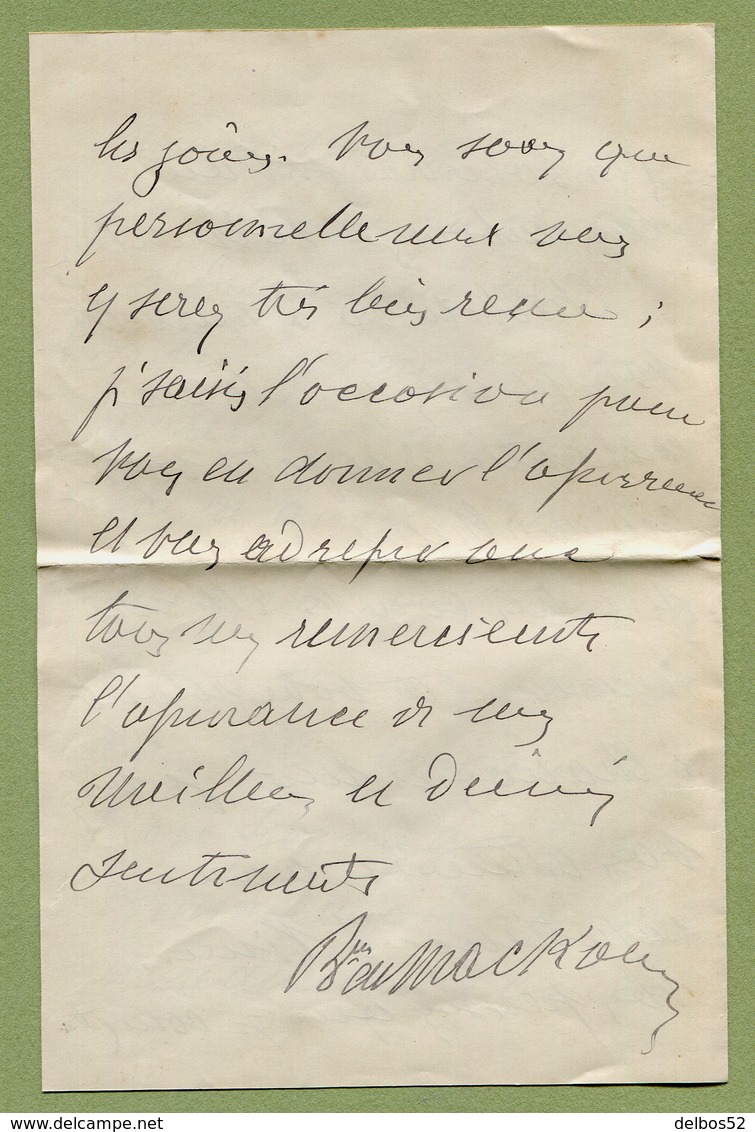 les joies. Vous savez que
personnellement vous
y serez très bien reçu ;
je saisis l'occasion pour
vous en donner l'assurance
et vous adresser avec
tous mes remerciements
l'assurance de mes
meilleurs et dévoués
sentiments
Bon de Mackau
delbos52